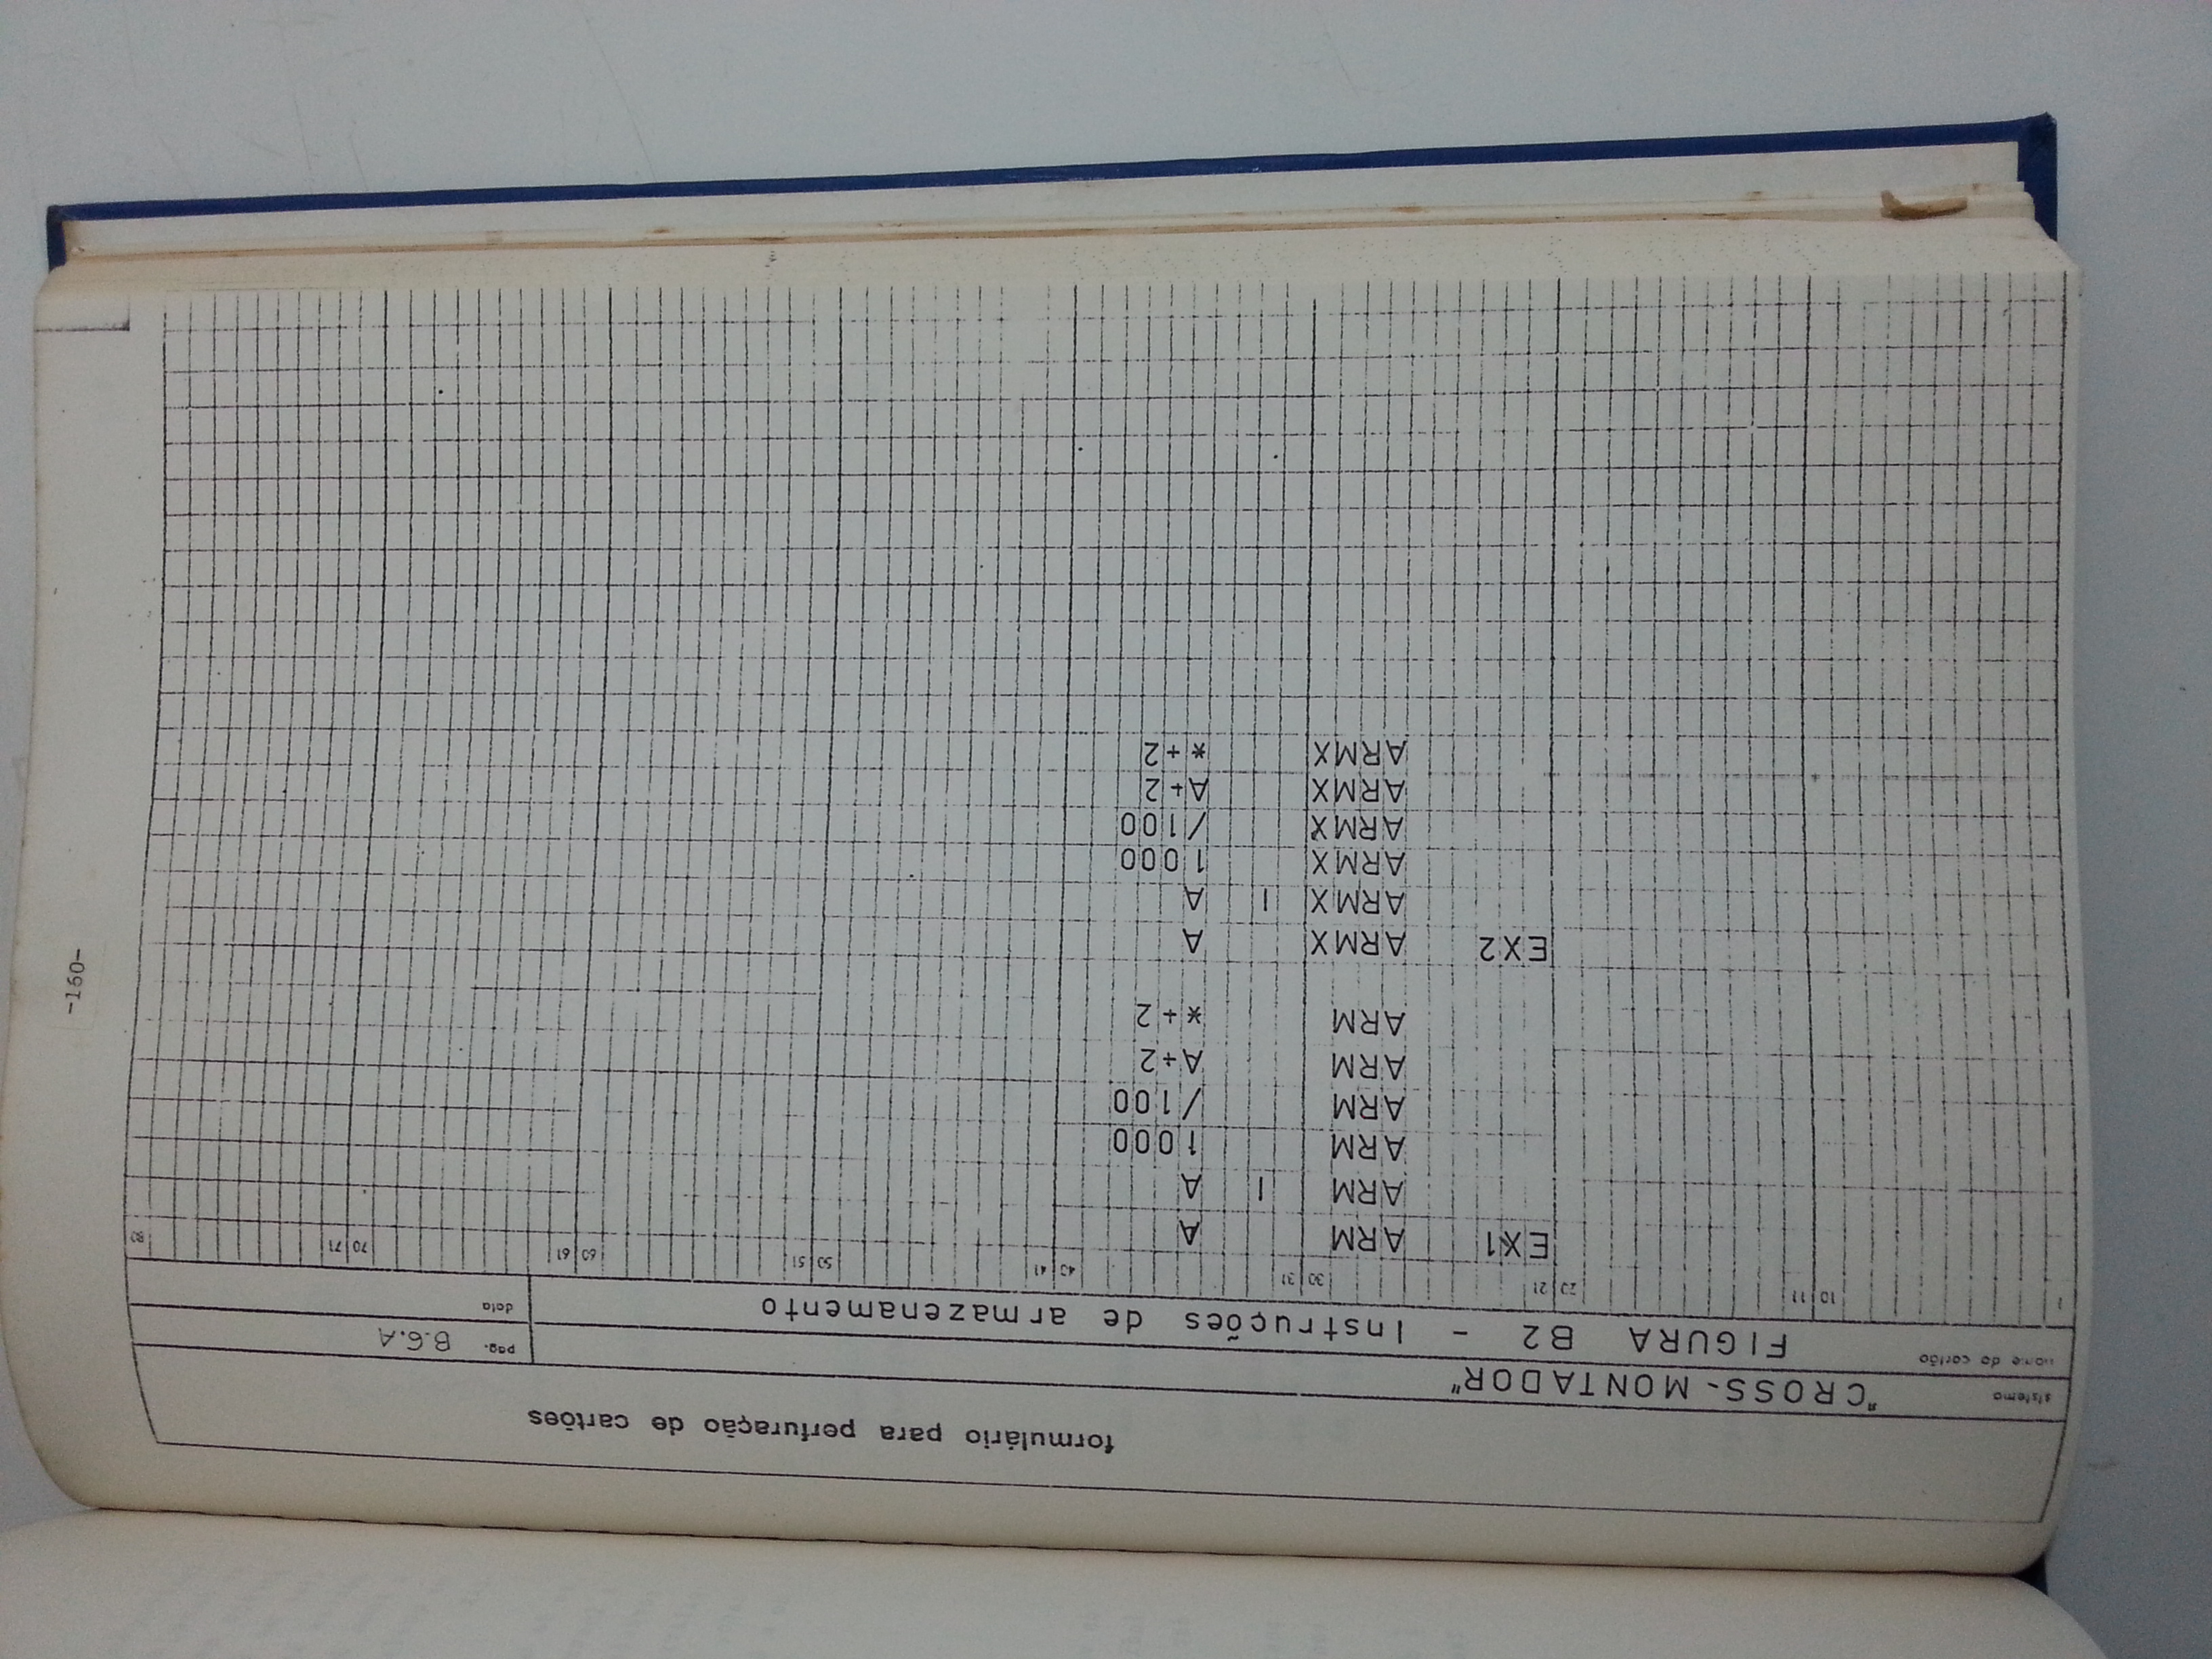 -160-
formulário para perfuração de cartões
sistema "CROSS-MONTADOR"
pag. B.6.A
nome do cartão FIGURA B2 - Instruções de armazenamento
data
1 10 11 20 21 30 31 40 41 50 51 60 61 70 71 80
EX1 ARM A
ARM I A
ARM 1000
ARM /100
ARM A+2
ARM *+2
EX2 ARMX A
ARMX I A
ARMX 1000
ARMX /100
ARMX A+2
ARMX *+2